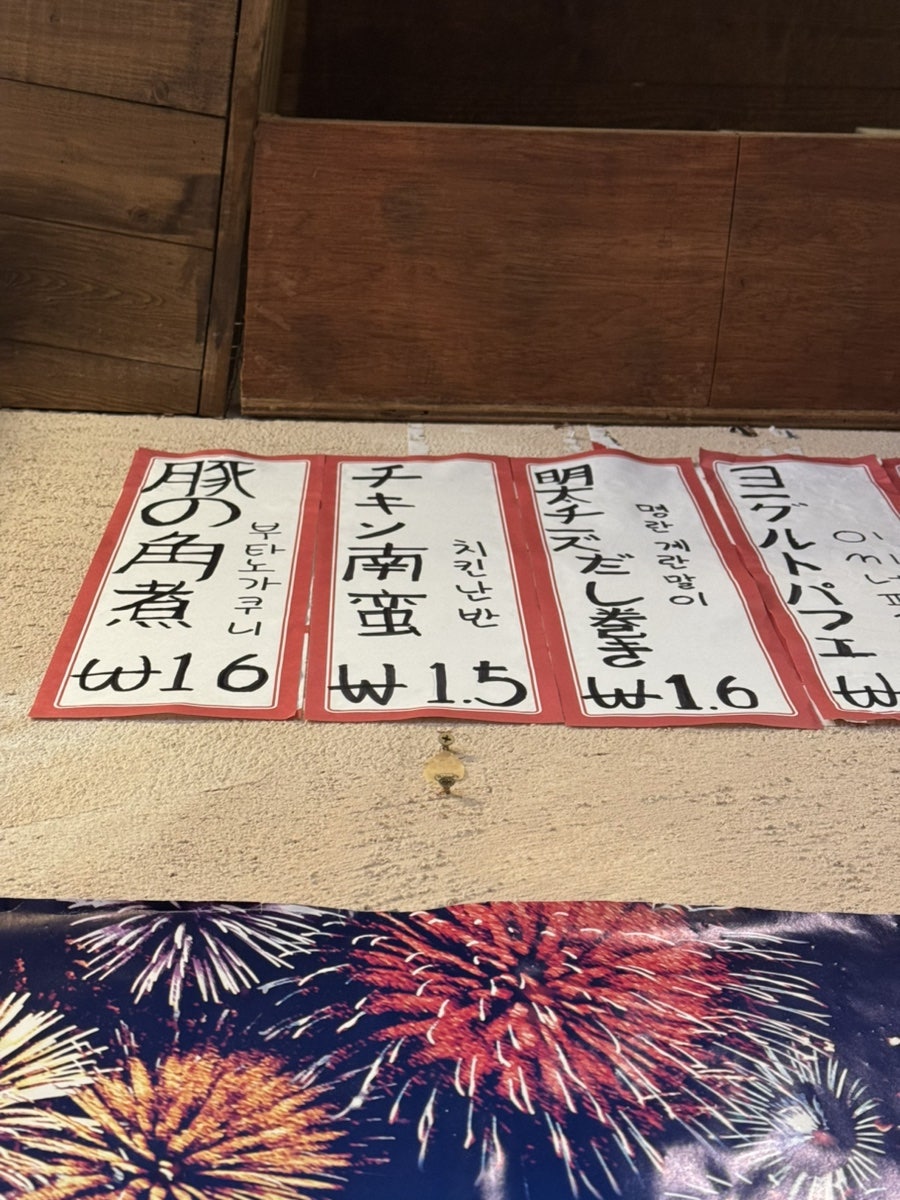 豚の角煮
부타노가쿠니
₩16
チキン南蛮
치킨난반
₩1.5
明太チーズだし巻き
명란 계란말이
₩1.6
ヨーグルトパフェ
₩